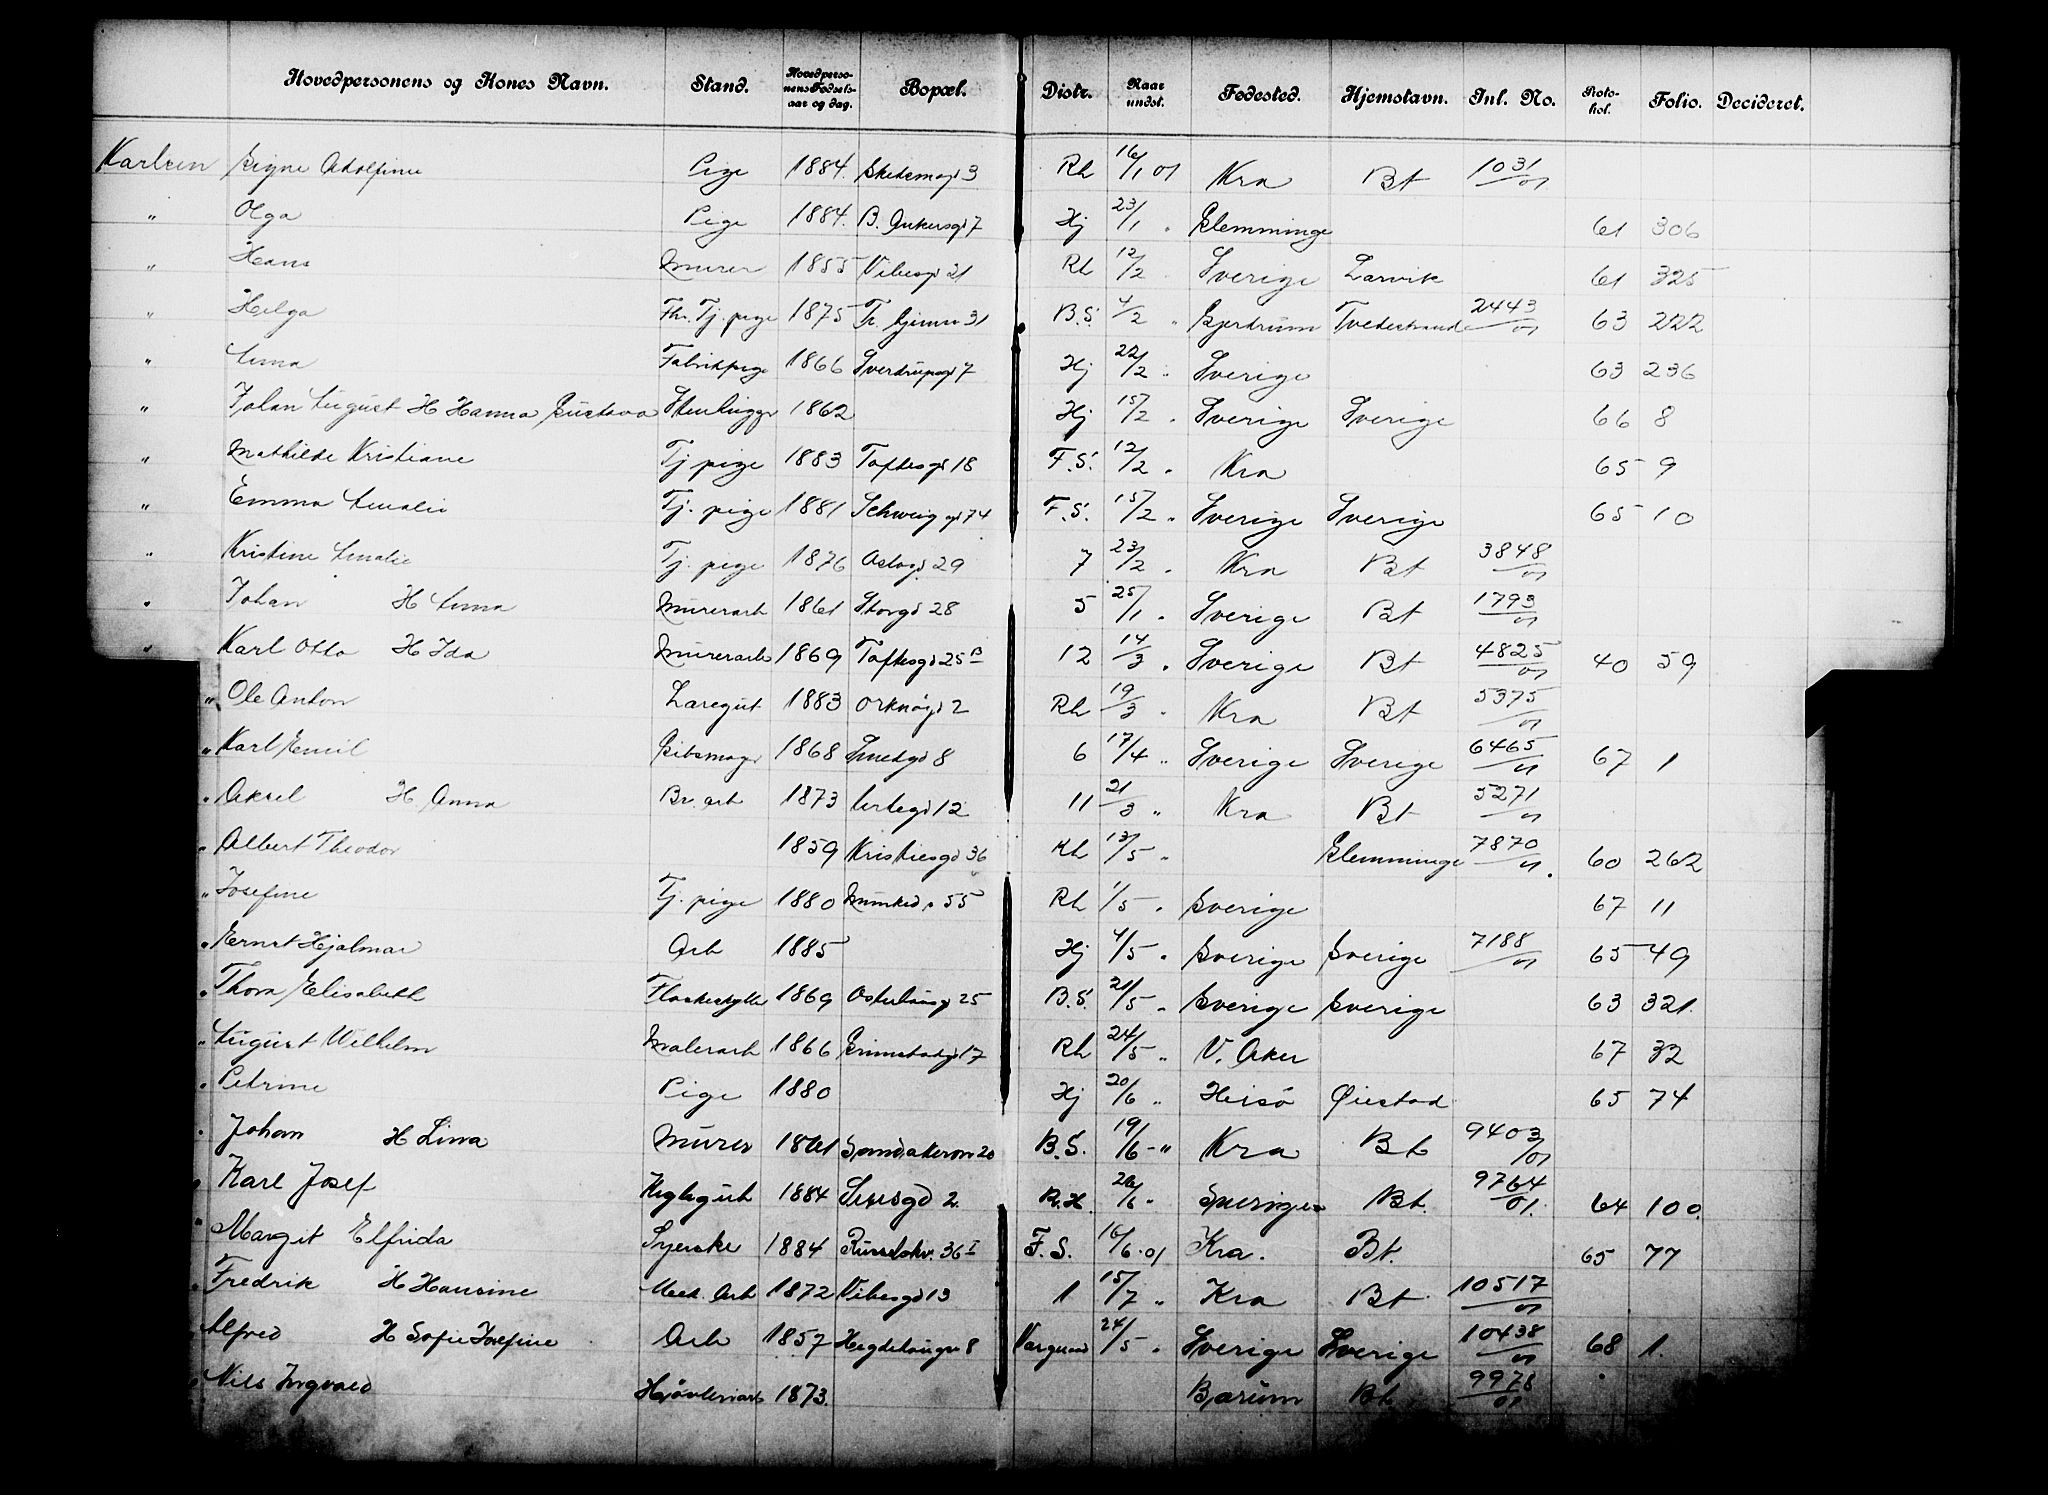 Hovedpersonens og Kones Navn. Stand. Hovedpersonens Fødselsaar og dag. Bopæl. Distr. Naar undst. Fødested. Hjemstavn. Inl. No. Protokol. Folio. Decideret.
Karlsen Signe Adolfine Pige 1884. 3 Rh 16/1 01 Kra Bt 1031/01
" Olga Pige 1884. B. Ankersgd 7 Hj 23/1 " Glemminge 61 306
" Hans Murer 1855 Vibesgd 21 Rh 12/2 Sverige Larvik 61 325
" Helga Fhv. Tj. pige 1875 31 B.S. 4/2 " Gjerdrum Tvedestrand 2443/01 63 222
" Anna Fabrikpige 1866 Sverdrupsgd 7 Hj 22/2 " Sverige 63 236
" Johan August H Hanna Gustava Stenhugger 1862 Hj 15/2 " Sverige Sverige 66 8
" Mathilde Kristiane Tj pige 1883 Toftesgd 18 F.S. 12/2 " Kra 65 9
" Emma Amalie Tj. pige 1881 Schweig gd 74 F.S. 15/2 " Sverige Sverige 65 10
" Kristine Amalie Tj. pige 1876 Oslogd 29 7 23/2 " Kra Bt 3848/01
" Johan H Anna Murerarb 1861 Storgd 28 5 25/1 " Sverige Bt 1793/01
" Karl Otto H Ida Murerarb 1869 Toftesgd 25 B 12 14/3 " Sverige Bt 4825/01 40 59
" Ole Anton Læregut 1883 Orknøgd 2 Rh 19/3 " Kra Bt 5375/01
" Karl Emil Gibsmager 1868 Smedgd 8 6 17/4 " Sverige Sverige 6465/01 67 1
" Aksel H Anna Br. arb 1873 Urtegd 12 11 21/3 " Kra Bt 5271/01
" Albert Theodor 1859 Kristiesgd 36 Rh 13/5 " Glemminge 7870/01. 60 262
" Josefine Tj. pige 1880 Munked " 55 Rh 1/5 " Sverige 67 11
" Ernst Hjalmar Arb 1885 Hj 4/5 " Sverige Sverige 7188/01 65 49
" Thora Elisabeth Flaskeskylle 1869 Osterhausgd 25 B.S. 21/5 " Sverige Sverige 63 321.
" August Wilhelm Malerarb 1866 Grimstadgd 17 Rh 24/5 " V. Aker 67 32
" Petrine Pige 1880 Hj 20/6 " Heisö Øiestad 65 74
" Johan H Lina Murer 1861 Sandakerv 20 B.S. 19/6 -" Kra Bt 9403/01
" Karl Josef 1884 2. R.H. 26/6 " Sverige Bt. 9764/01. 64 100.
" Margit Elfrida Syerske 1884 36 I F.S. 16/6.01 Kra. Bt. 65 77
" Fredrik H Hansine Mek. Arb 1872 Vibesgd 13 1 15/7 " Kra Bt 10517/01
" Alfred H Sofie Josefine Arb 1857 Hegdehaugsv 8 24/5 " Sverige Sverige 10438/01 68 1.
" Nils Ingvald Høvleriarb 1873. Bærum Bt 9978/01